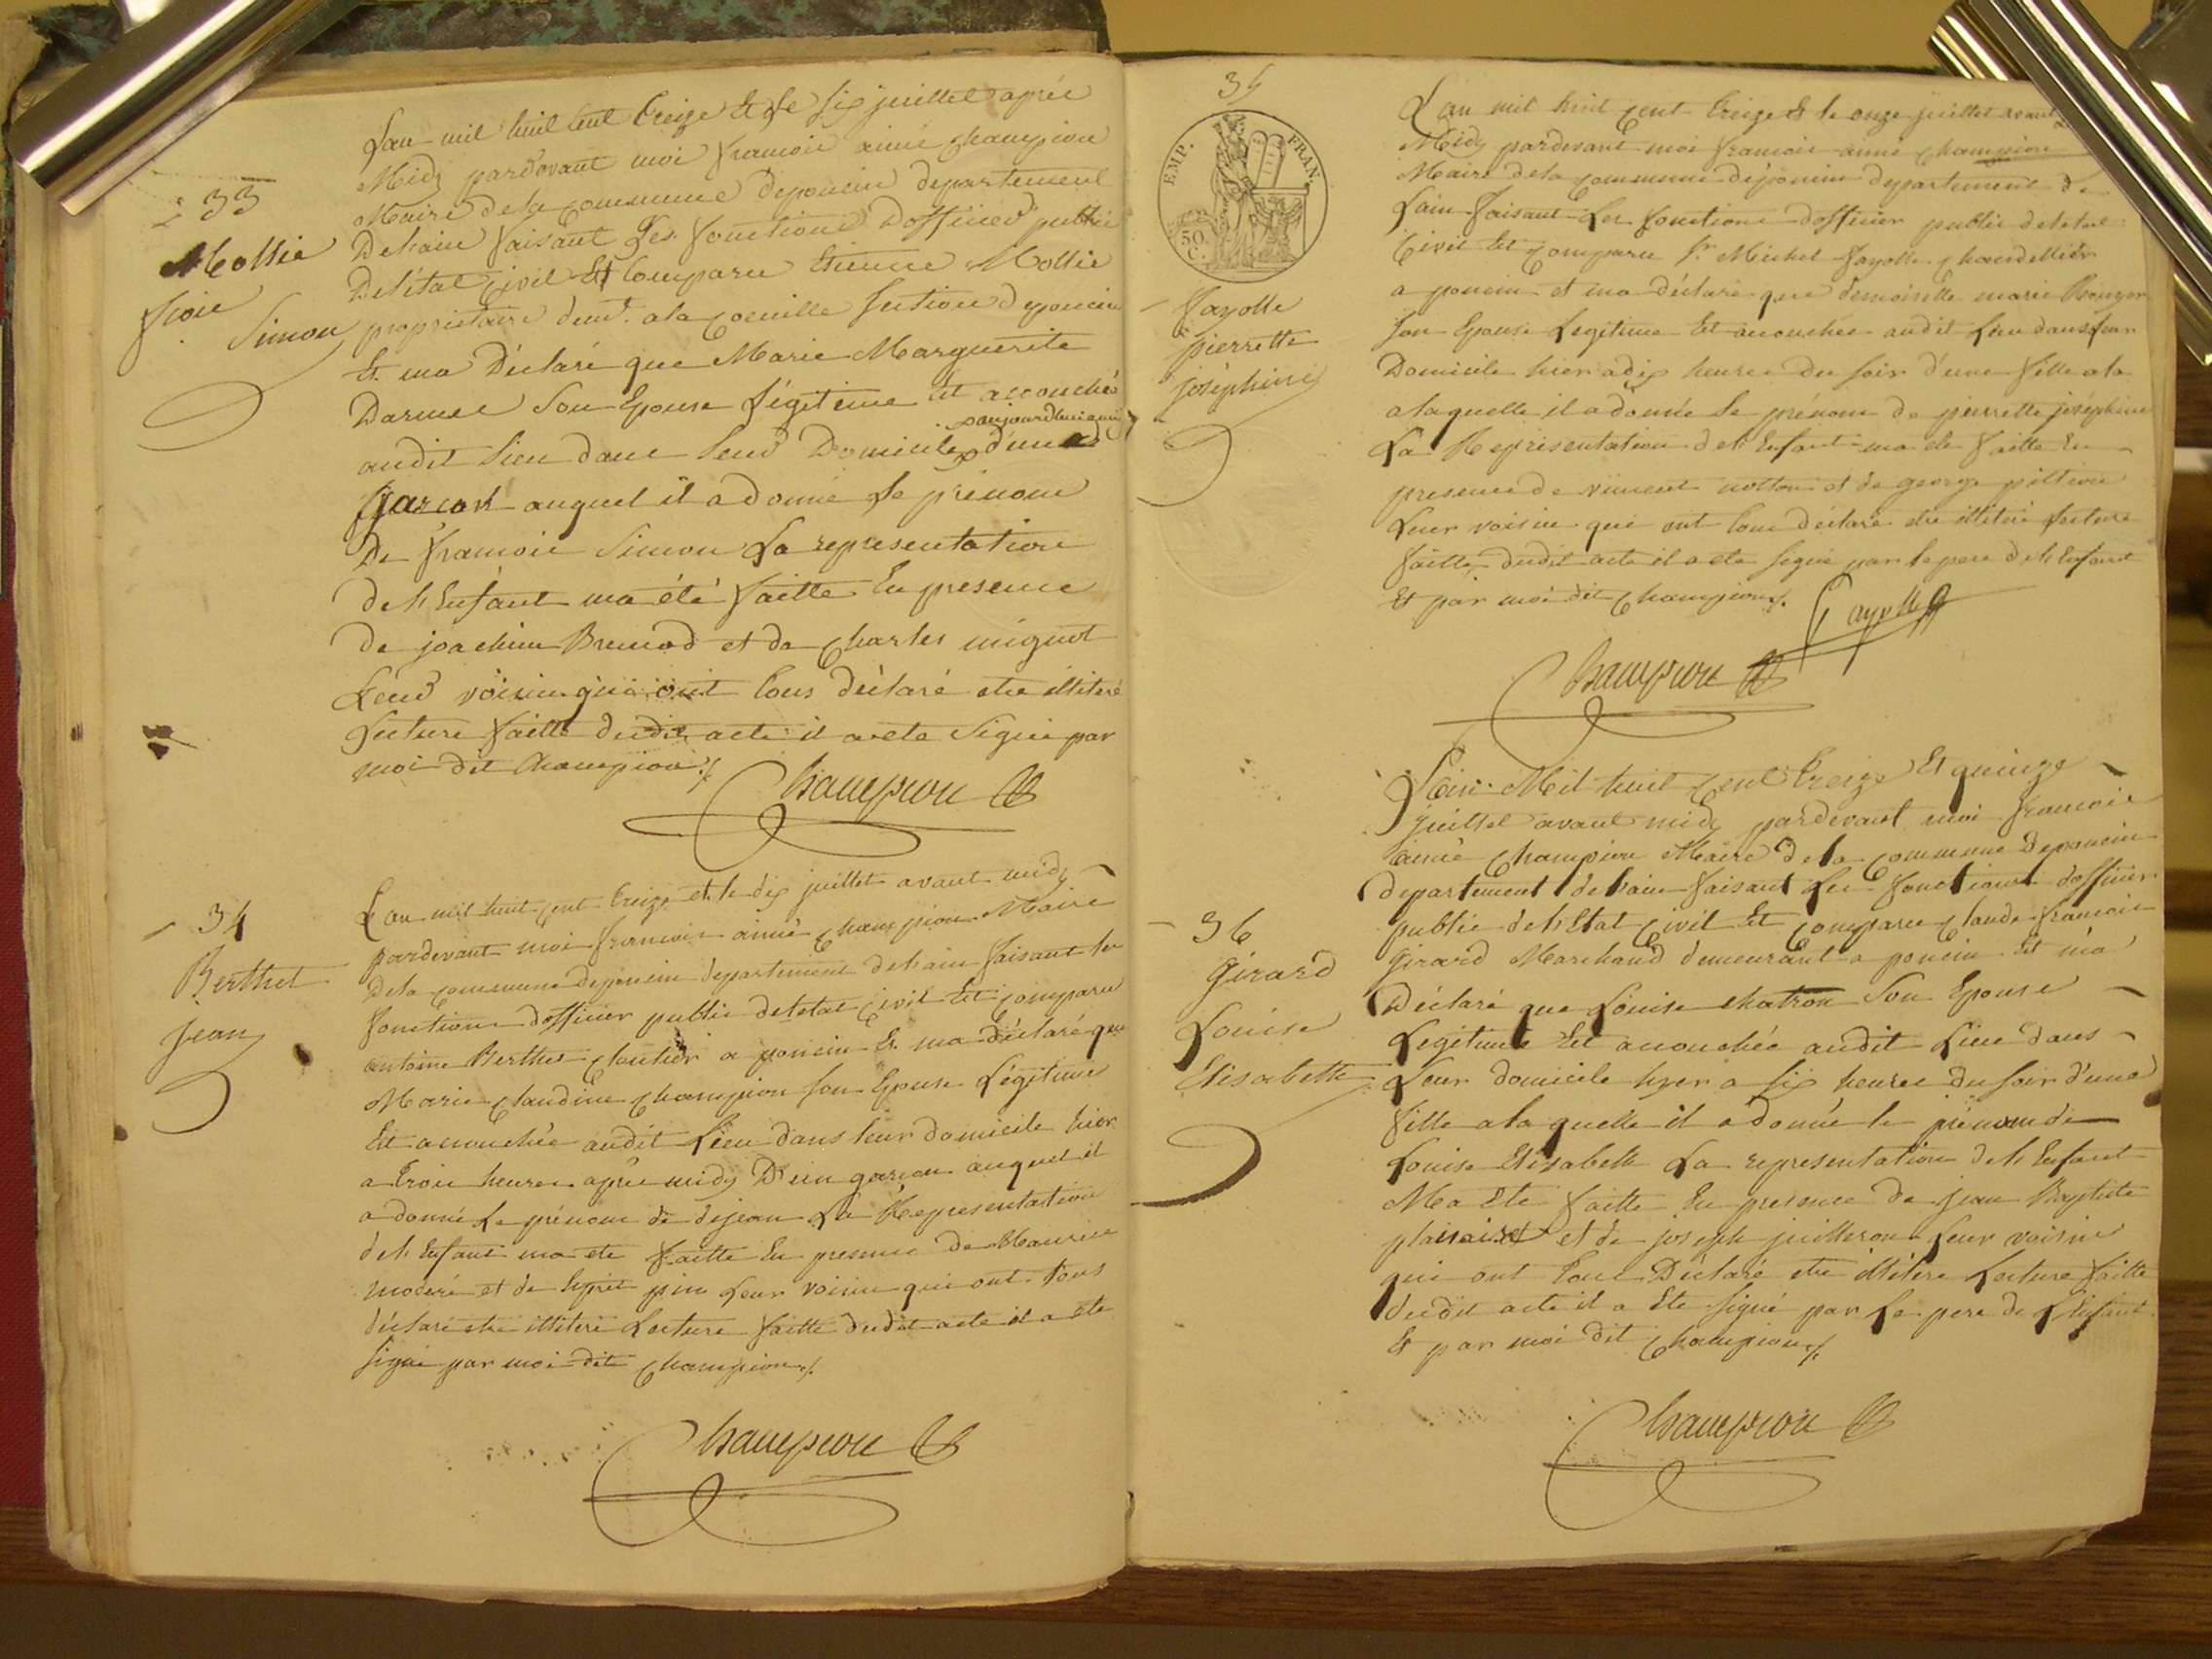 33
Mollie
fcoie
Simon
L'an mil huit cent treize et le six juillet aprés
Midy pardevant moi francois aimé champion
Maire de la commune deponcin departement
Delain faisant Les fonctions Dofficier public
Deletat civil Est Comparu Etienne Mollie
propriétaire demt. ala section deponcin
Et ma Déclaré que Marie Marguerite
Son Epouse légitime Est accouchée
audit lieu dans leur Domicile aujourdhui d'un
garcon auquel il a donné le prénom
De francois Simon La representation
de lEnfant ma été faitte En presence
de joachim Brunod et de charles mignot
Leur voisin qui ont tous déclaré etre illiteré
Lecture faitte dudit acte il a ete signé par
moi dit Champion ./.
Champion
34
Berthet
jean
L'an mil huit cent treize et le dix juillet avant midy
pardevant moi francois aimé champion Maire
Dela commune deponcin departement delain faisant les
fonctions dofficier public deletat civil Est comparu
antoine Berthet a poncin Et ma déclaré que
Marie claudine champion son Epouse Légitime
Est accouchée audit Lieu dans leur domicile hier
a trois heures aprés midy D'un garcon auquel il
a donné Le prénom de dejean La Representation
de lEnfant ma ete faitte En presence de Maurice
et de pin Leur voisin qui ont tous
déclaré etre illiteré Lecture faitte dudit acte il a ete
signé par moi dit champion ./.
Champion
35
EMP. FRAN.
50 C.
fayolle
pierrette
joséphine
L'an mil huit cent treize et le onze juillet avant
Midy pardevant moi francois aimé champion
Maire dela commune déponcin departement de
Lain faisant Les fonctions dofficier public deletat
Civil Est comparu Sr. Michel fayolle chandellier
a poncin et ma déclaré que demoiselle marie
son Epouse Legitime Est accouchée audit Lieu dans leur
Domicile hier a dix heures du soir d'une fille a la
alaquelle il a donné le prénom de pierrette joséphine
La Representation de lEnfant ma ete faitte En
presence de vincent notton et de george
Leur voisin qui ont tous déclaré etre illiteré Lecture
faitte dudit acte il a ete signé par le pere de lEnfant
Et par moi dit champion ./.
fayolle
Champion
36
Girard
Louise
Elisabeth
L'an Mil huit cent treize Et quinze
juillet avant midy pardevant moi francois
aimé champion Maire dela commune Deponcin
departement delain faisant Les fonctions dofficier
public de lEtat civil Est comparu claude francois
Girard Marchand demeurant a poncin Et m'a
Déclaré que Louise chatron Son Epouse
Legitime Est accouchée audit Lieu dans
Leur domicile hyer a six heures du soir d'une
fille a la quelle il a donné le prénom de
Louise Elisabeth La representation de lEnfant
Ma Ete faitte En presence de jean Baptiste
et de joseph juilleron Leur voisin
qui ont tous Déclaré etre illitere Lecture faitte
dudit acte il a Ete signé par Le pere de lEnfant
Et par moi dit champion ./.
Champion